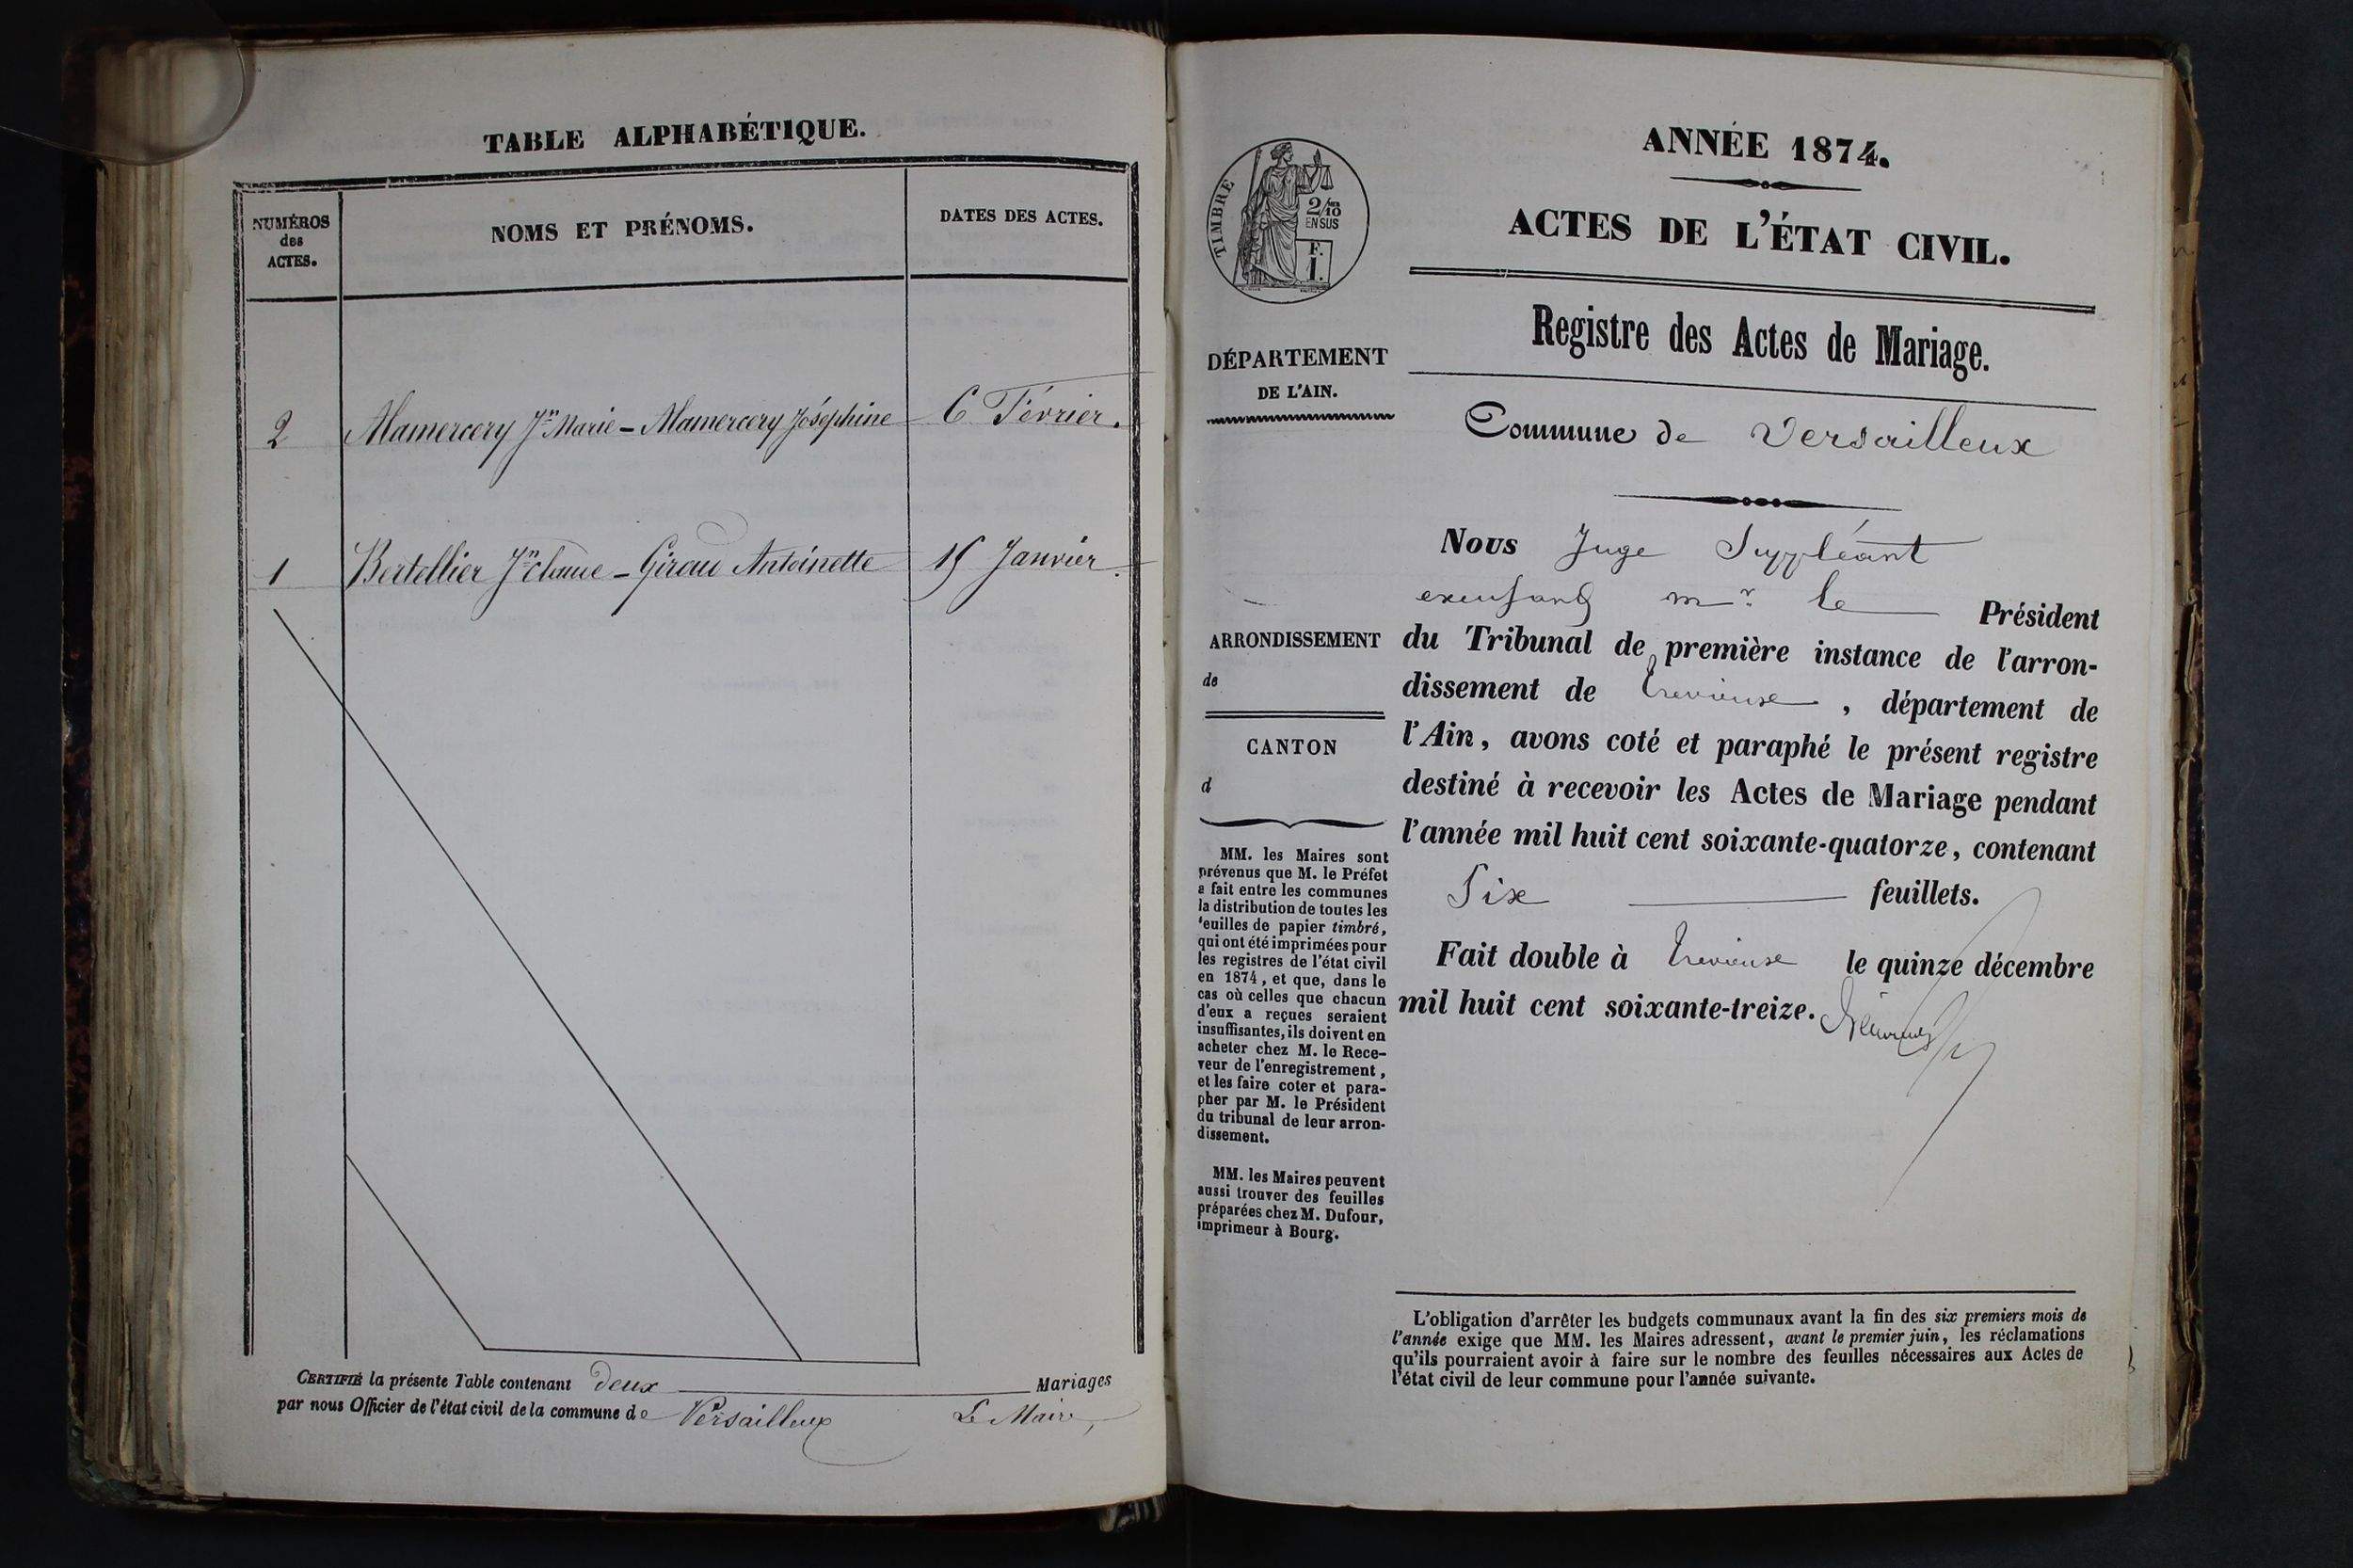 TABLE ALPHABÉTIQUE.
NUMÉROS
des
ACTES.
NOMS ET PRÉNOMS.
DATES DES ACTES.
2 Mamercery Jn Marie - Mamercery Joséphine 6 Février.
1 Bertellier Jn claude - Giraud Antoinette 15 Janvier.
CERTIFIÉ la présente Table contenant deux Mariages
par nous Officier de l'état civil de la commune de Versailleux Le Maire,
TIMBRE
2/10
EN SUS
F.
1.
DÉPARTEMENT
DE L'AIN.
ARRONDISSEMENT
de
CANTON
d
MM. les Maires sont
prévenus que M. le Préfet
a fait entre les communes
la distribution de toutes les
feuilles de papier timbré,
qui ont été imprimées pour
les registres de l'état civil
en 1874, et que, dans le
cas où celles que chacun
d'eux a reçues seraient
insuffisantes, ils doivent en
acheter chez M. le Rece-
veur de l'enregistrement,
et les faire coter et para-
pher par M. le Président
du tribunal de leur arron-
dissement.
MM. les Maires peuvent
aussi trouver des feuilles
préparées chez M. Dufour,
imprimeur à Bourg.
ANNÉE 1874.
ACTES DE L'ÉTAT CIVIL.
Registre des Actes de Mariage.
Commune de Versailleux
Nous Juge Suppléant
mr le Président
du Tribunal de première instance de l'arron-
dissement de , département de
l'Ain, avons coté et paraphé le présent registre
destiné à recevoir les Actes de Mariage pendant
l'année mil huit cent soixante-quatorze, contenant
Six feuillets.
Fait double à le quinze décembre
mil huit cent soixante-treize.
L'obligation d'arrêter les budgets communaux avant la fin des six premiers mois de
l'année exige que MM. les Maires adressent, avant le premier juin, les réclamations
qu'ils pourraient avoir à faire sur le nombre des feuilles nécessaires aux Actes de
l'état civil de leur commune pour l'année suivante.